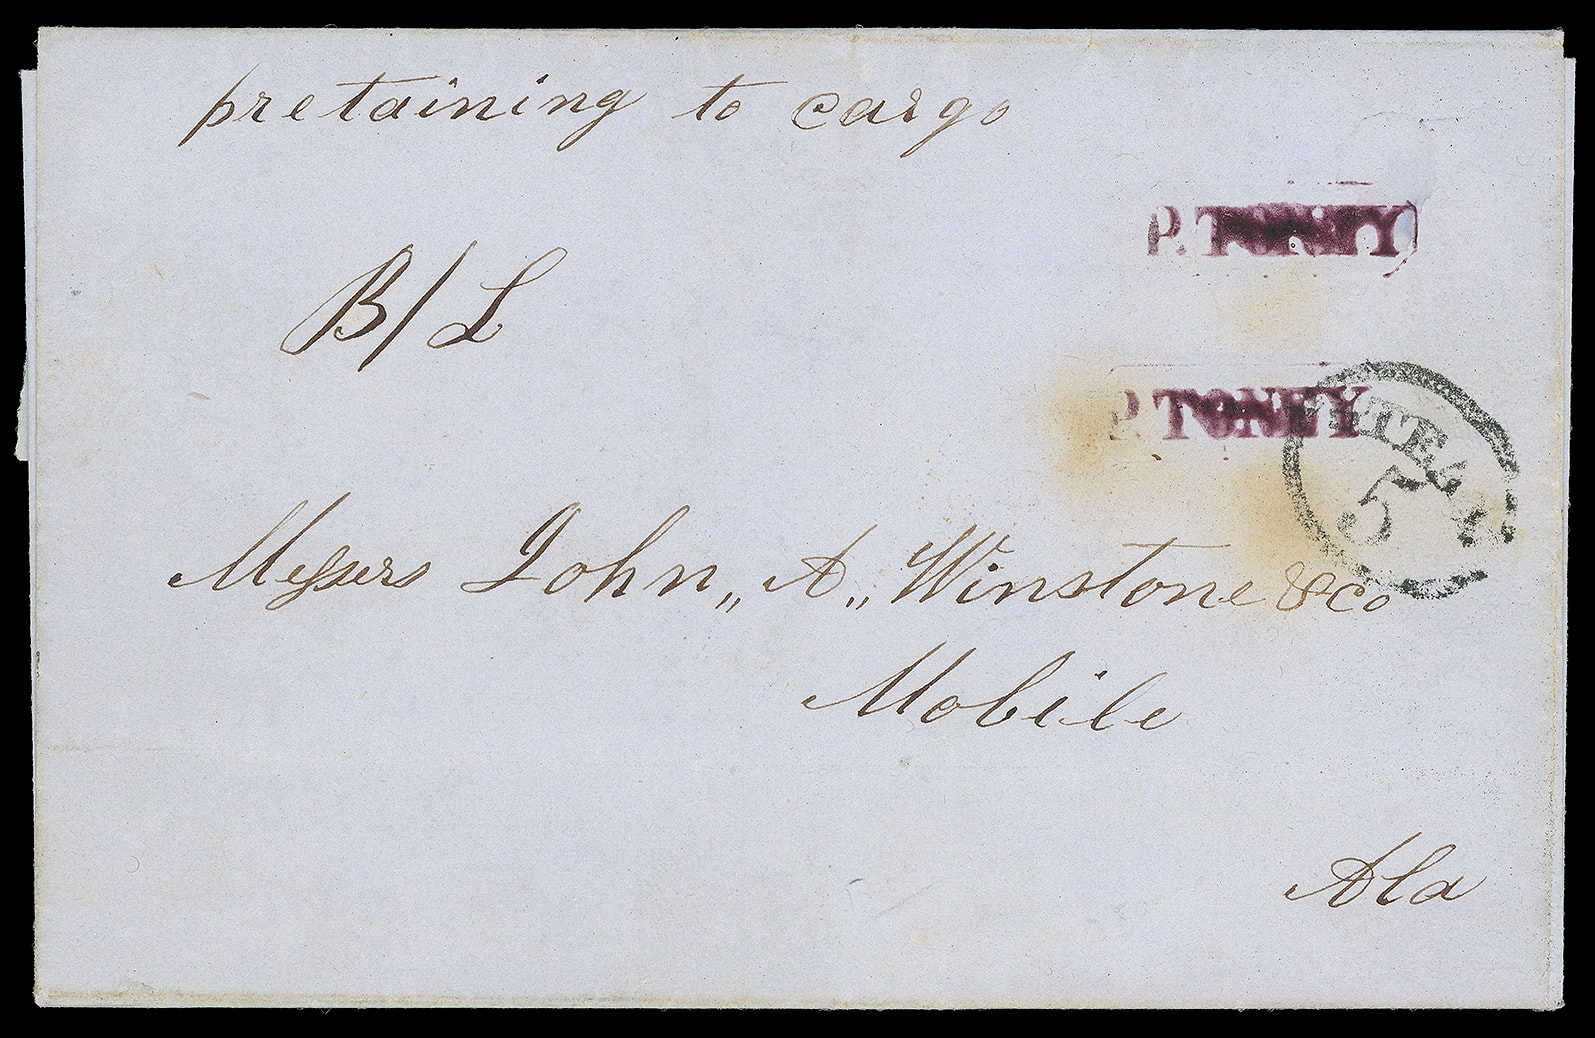 pretaining to cargo
P. TONEY
B/L
P. TONEY
5
Messers John,, A,, Winstone & Co
Mobile
Ala